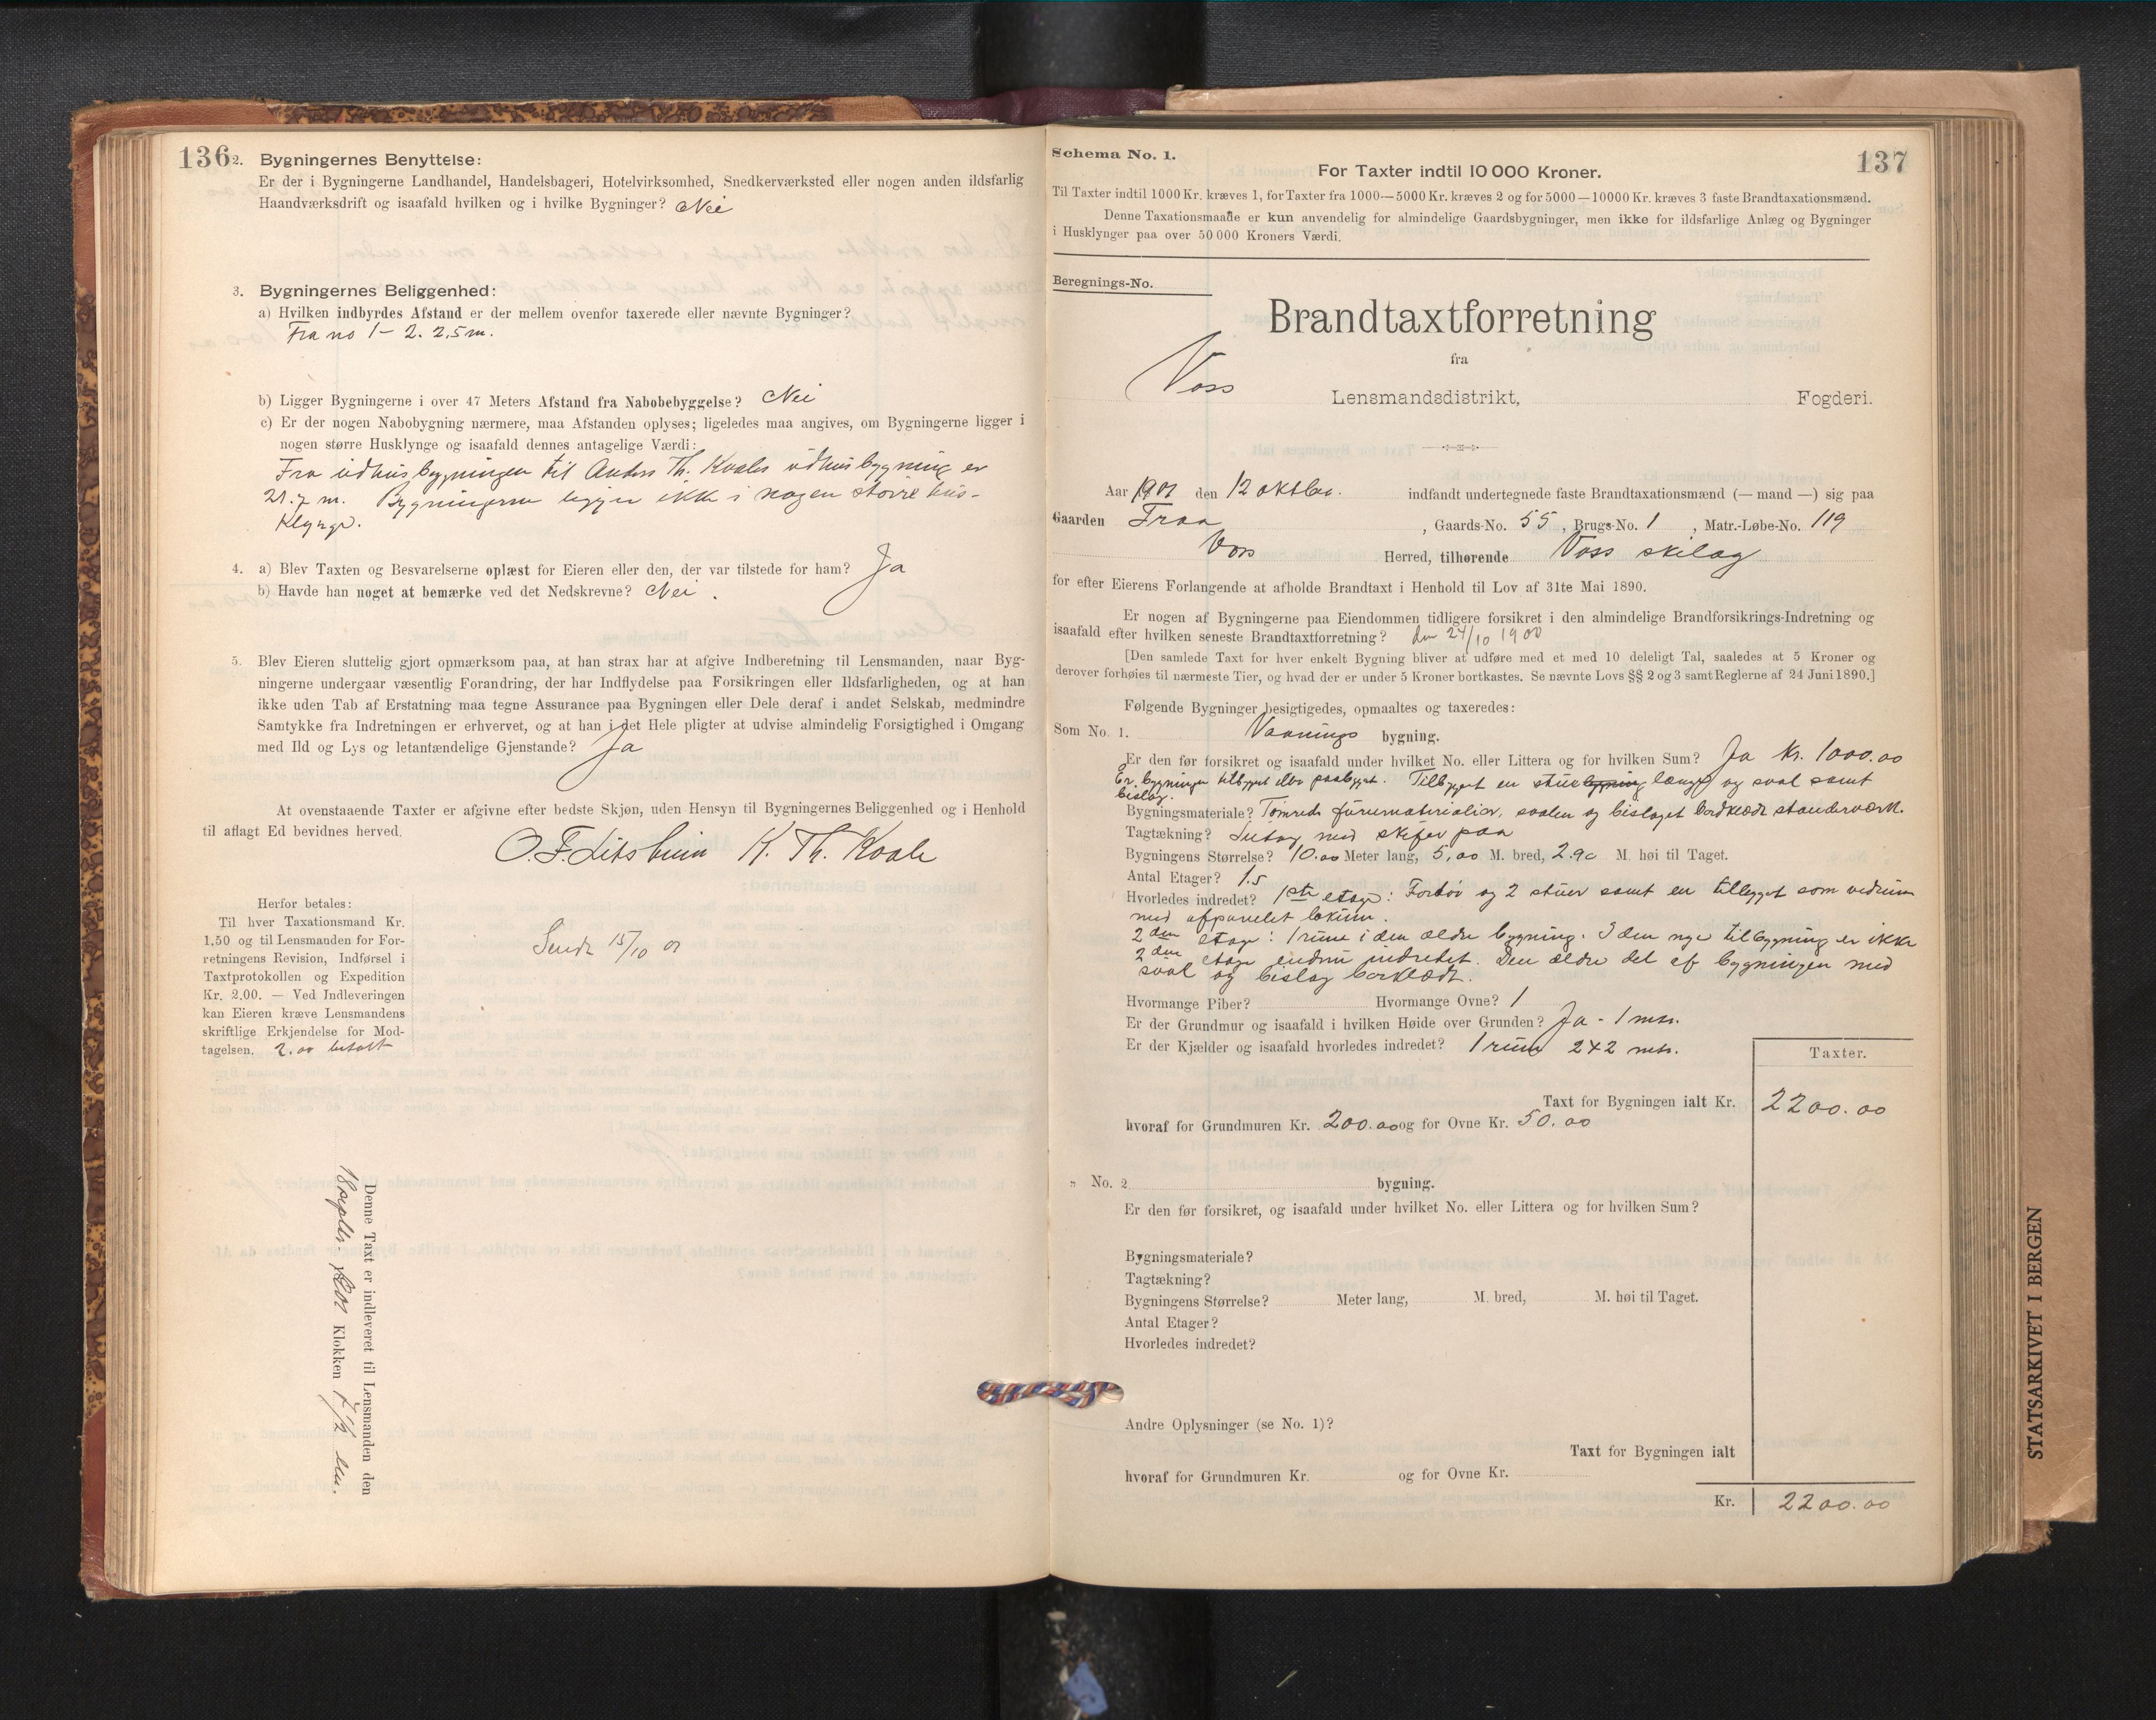 136
2. Bygningernes Benyttelse:
Er der i Bygningerne Landhandel, Handelsbageri, Hotelvirksomhed, Snedkerværksted eller nogen anden ildsfarlig
Haandværksdrift og isaafald hvilken og i hvilke Bygninger? Nei
3. Bygningernes Beliggenhed:
a) Hvilken indbyrdes Afstand er der mellem ovenfor taxerede eller nævnte Bygninger?
Fra no 1 - 2. 2,5 m.
b) Ligger Bygningerne i over 47 Meters Afstand fra Nabobebyggelse? Nei
c) Er der nogen Nabobygning nærmere, maa Afstanden oplyses; ligeledes maa angives, om Bygningerne ligger i
nogen større Husklynge og isaafald dennes antagelige Værdi:
Fra udhusbygningen til Anders Th. Kvales udhusbygning er
21.7 m. Bygningerne ligger ikke i nogen større hus-
klynge.
4. a) Blev Taxten og Besvarelserne oplæst for Eieren eller den, der var tilstede for ham? Ja
b) Havde han noget at bemærke ved det Nedskrevne? Nei.
5. Blev Eieren sluttelig gjort opmærksom paa, at han strax har at afgive Indberetning til Lensmanden, naar Byg-
ningerne undergaar væsentlig Forandring, der har Indflydelse paa Forsikringen eller Ildsfarligheden, og at han
ikke uden Tab af Erstatning maa tegne Assurance paa Bygningen eller Dele deraf i andet Selskab, medmindre
Samtykke fra Indretningen er erhvervet, og at han i det Hele pligter at udvise almindelig Forsigtighed i Omgang
med Ild og Lys og letantændelige Gjenstande? Ja
At ovenstaaende Taxter er afgivne efter bedste Skjøn, uden Hensyn til Bygningernes Beliggenhed og i Henhold
til aflagt Ed bevidnes herved.
O. F. K. Th. Kvale
Herfor betales:
Til hver Taxationsmand Kr.
1.50 og til Lensmanden for For-
retningens Revision, Indførsel i
Taxtprotokollen og Expedition
Kr. 2.00. — Ved Indleveringen
kan Eieren kræve Lensmandens
skriftlige Erkjendelse for Mod-
tagelsen. 2.00 betalt
Sendt 15/10 01
Denne Taxt er indleveret til Lensmanden den
18 septbr. 1901 Klokken 7 1/2 em.
Schema No. 1.
137
For Taxter indtil 10 000 Kroner.
Til Taxter indtil 1000 Kr. kræves 1, for Taxter fra 1000—5000 Kr. kræves 2 og for 5000—10000 Kr. kræves 3 faste Brandtaxationsmænd.
Denne Taxationsmaade er kun anvendelig for almindelige Gaardsbygninger, men ikke for ildsfarlige Anlæg og Bygninger
i Husklynger paa over 50 000 Kroners Værdi.
Beregnings-No.
Brandtaxtforretning
fra
Voss Lensmandsdistrikt, Fogderi.
Aar 1901 den 12 oktbr. indfandt undertegnede faste Brandtaxationsmænd (— mand —) sig paa
Gaarden Traa, Gaards-No. 55, Brugs-No. 1, Matr.-Løbe-No. 119
Voss Herred, tilhørende Voss skilag
for efter Eierens Forlangende at afholde Brandtaxt i Henhold til Lov af 31te Mai 1890.
Er nogen af Bygningerne paa Eiendommen tidligere forsikret i den almindelige Brandforsikrings-Indretning og
isaafald efter hvilken seneste Brandtaxtforretning? den 24/10 1900
[Den samlede Taxt for hver enkelt Bygning bliver at udføre med et med 10 deleligt Tal, saaledes at 5 Kroner og
derover forhøies til nærmeste Tier, og hvad der er under 5 Kroner bortkastes. Se nævnte Lovs §§ 2 og 3 samt Reglerne af 24 Juni 1890.]
Følgende Bygninger besigtigedes, opmaaltes og taxeredes:
Som No. 1. Vaanings bygning.
Er den før forsikret og isaafald under hvilket No. eller Littera og for hvilken Sum? Ja Kr. 1000.00
Er bygningen tilbygget eller paabygget. Tilbygget en stue længde og sval samt
bislag.
Bygningsmateriale? Tømrede furumaterialier, svalen og bislaget bordklædt standerværk.
Tagtækning? Sutag med skifer paa
Bygningens Størrelse? 10.00 Meter lang, 5,00 M. bred, 2.90 M. høi til Taget.
Antal Etager? 1.5
Hvorledes indredet? 1ste etage: Fordør og 2 stuer samt en tilbygget som vedrum
med afpanelet lokum.
2den etage: 1 rum i den ældre bygning. I den nye tilbygning er ikke
2den etage endnu indredet. Den ældre del af bygningen med
sval og bislag bordklædt.
Hvormange Piber? Hvormange Ovne? 1
Er der Grundmur og isaafald i hvilken Høide over Grunden? Ja - 1 mtr.
Er der Kjælder og isaafald hvorledes indredet? 1 rum 2x2 mtr.
Taxter.
Taxt for Bygningen ialt Kr. 2200.00
hvoraf for Grundmuren Kr. 200.00 og for Ovne Kr. 50.00
" No. 2 bygning.
Er den før forsikret, og isaafald under hvilket No. eller Littera og for hvilken Sum?
Bygningsmateriale?
Tagtækning?
Bygningens Størrelse? Meter lang, M. bred, M. høi til Taget.
Antal Etager?
Hvorledes indredet?
Andre Oplysninger (se No. 1)?
Taxt for Bygningen ialt
hvoraf for Grundmuren Kr. og for Ovne Kr.
Kr. 2200.00
STATSARKIVET I BERGEN